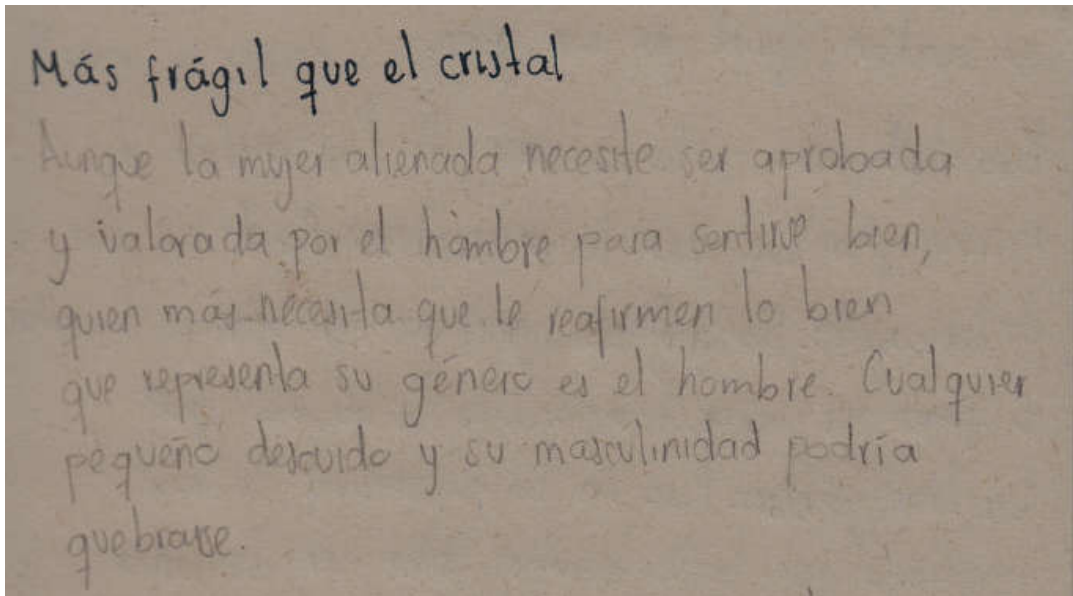 Más frágil que el cristal
Aunque la mujer alienada necesite ser aprobada
y valorada por el hombre para sentirse bien,
quien más necesita que le reafirmen lo bien
que representa su género es el hombre. Cualquier
pequeño descuido y su masculinidad podría
quebrarse.